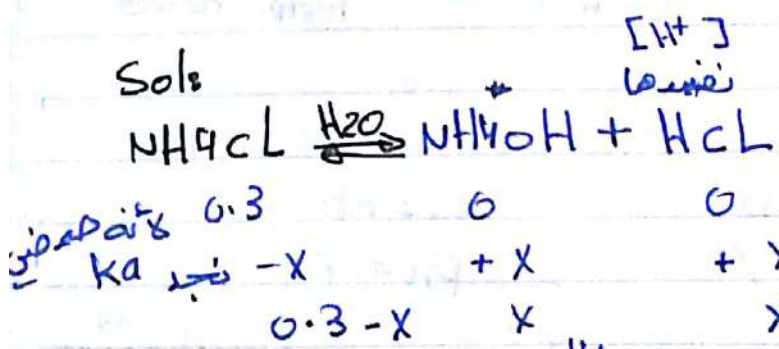 [H+]
Sol:
نفسها
NH4CL ⇌ H2O NH4OH + HCL
0.3 0 0
لأنه حامضي
نجد ka -X + X + X
0.3-X X X